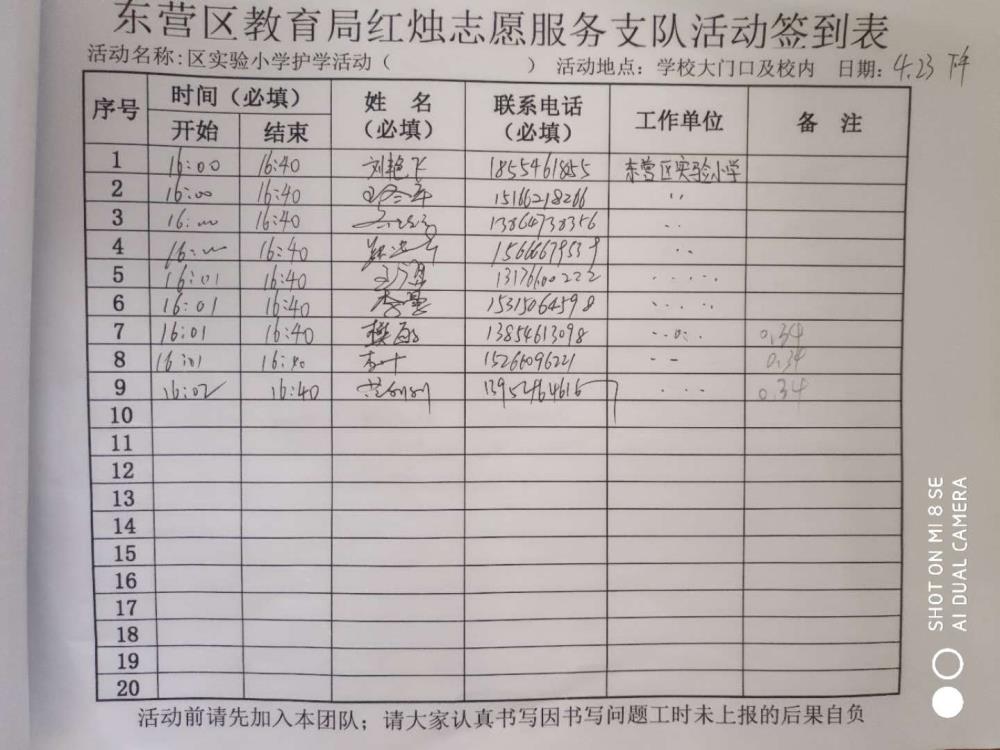 东营区教育局红烛志愿服务支队活动签到表
活动名称:区实验小学护学活动（ ） 活动地点：学校大门口及校内 日期：4.23
序号 时间（必填） 姓 名（必填） 联系电话（必填） 工作单位 备 注
开始 结束
1 16:00 16:40 刘艳飞 东营区实验小学
2 16:00 16:40 15166218266 〃
3 16:00 16:40 13864738356
4 16:00 16:40 15666679539
5 16:01 16:40 13176600222
6 16:01 16:40 李慧 15315064598
7 16:01 16:40 13854613098 0.34
8 16:01 16:40 15266096221 0.34
9 16:02 16:40 0.34
10
11
12
13
14
15
16
17
18
19
20
活动前请先加入本团队；请大家认真书写因书写问题工时未上报的后果自负
SHOT ON MI 8 SE
AI DUAL CAMERA